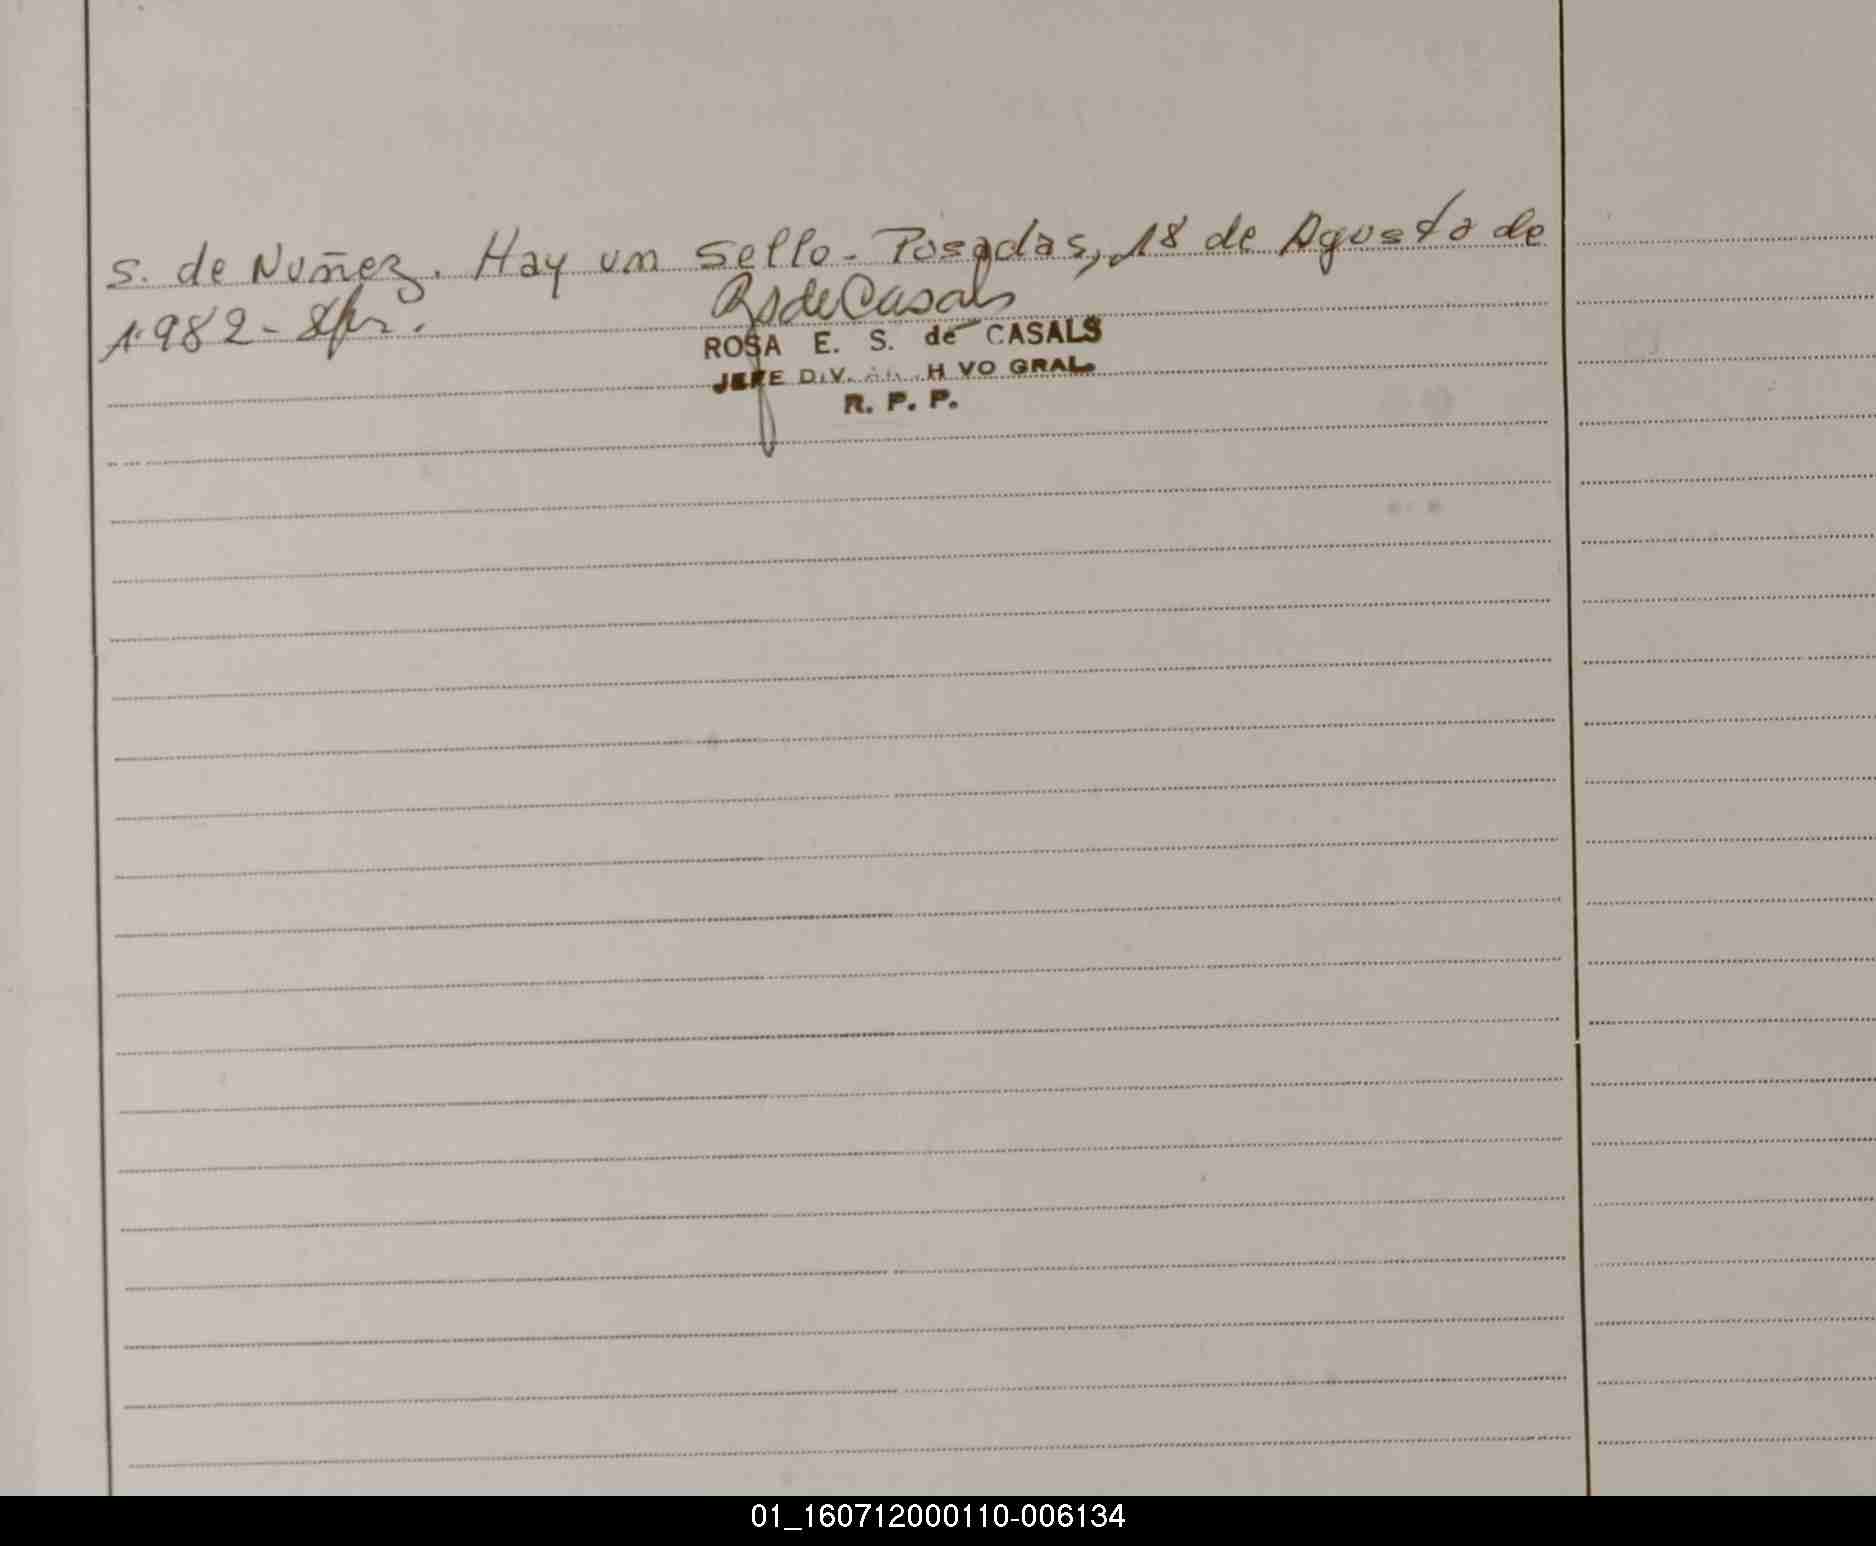 S. de Nuñez. Hay un sello - Posadas, 18 de Agosto de
1.982 -
RSdeCasals
ROSA E. S. de CASALS
JEFE DIV. H VO GRAL.
R. P. P.
01_160712000110-006134